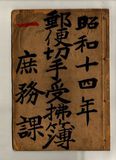 昭和十四年
郵便切手受拂簿
庶務課